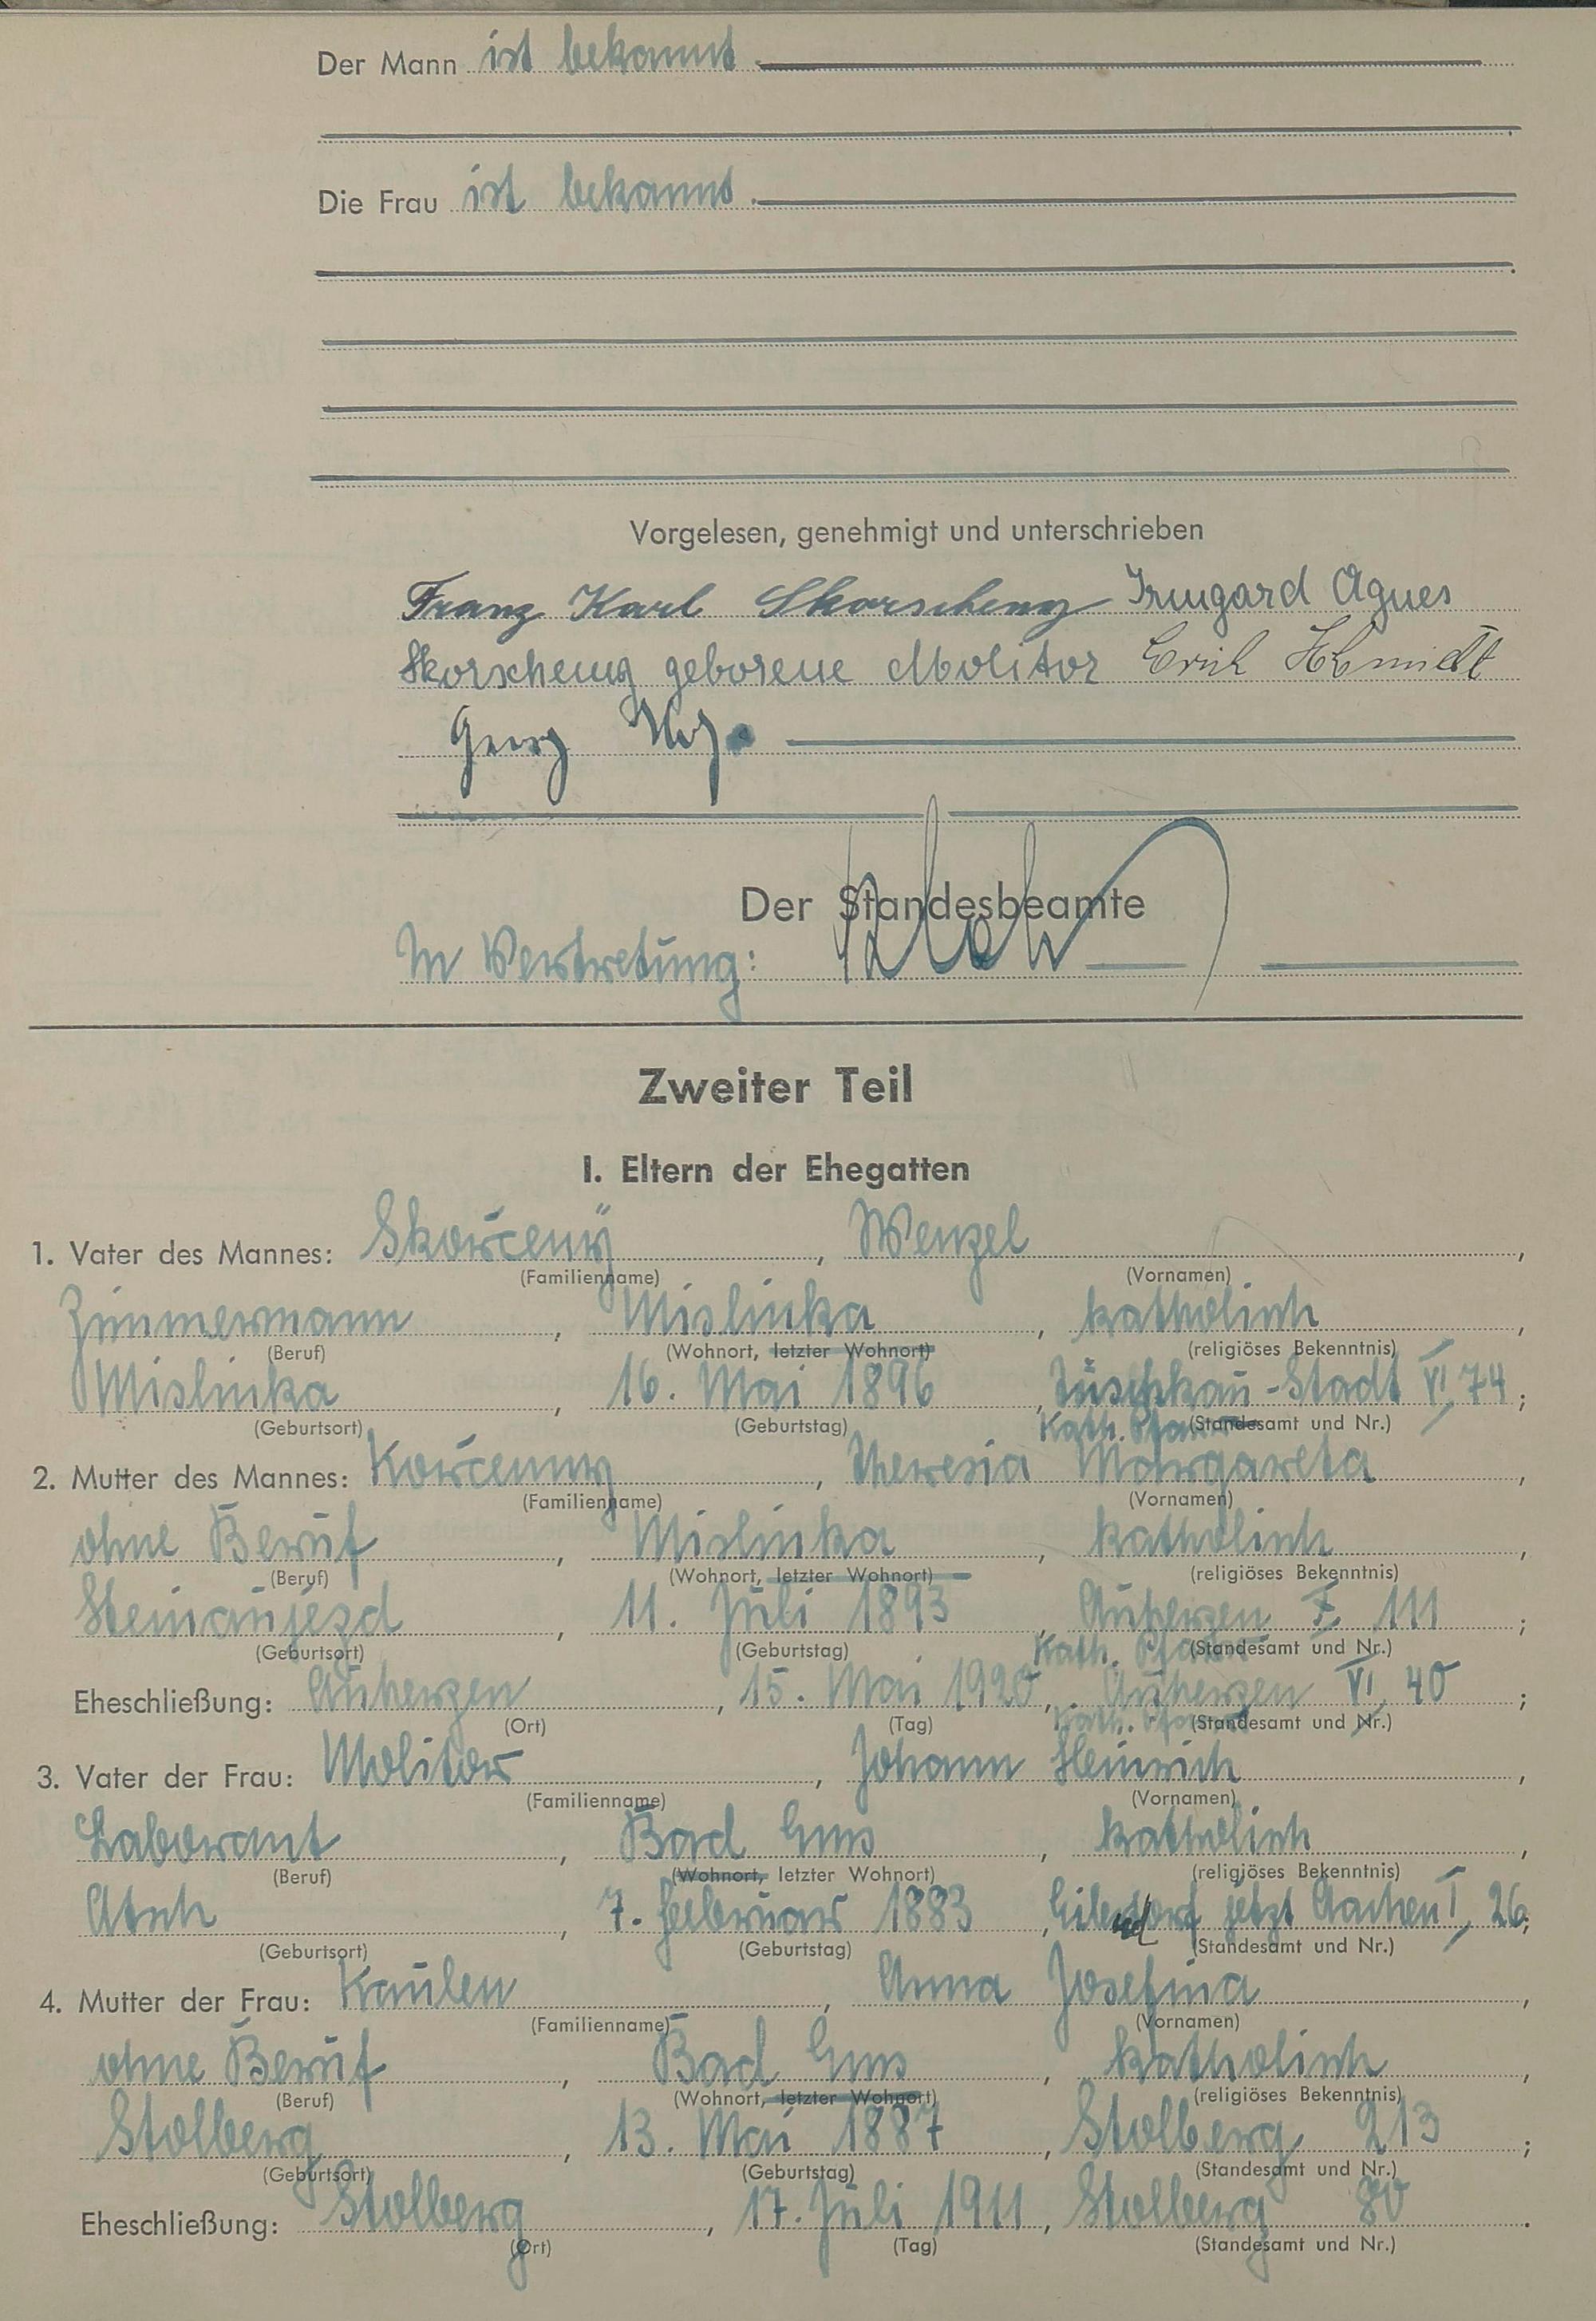 Der Mann ist bekannt
Die Frau ist bekannt.
Vorgelesen, genehmigt und unterschrieben
Franz Karl Skorscheny Irmgard Agnes
Skorscheny geborene Molitor Erich Schmidt
Georg
Der Standesbeamte
In Vertretung:
Zweiter Teil
I. Eltern der Ehegatten
1. Vater des Mannes: Skořčený, Wenzel,
(Familienname) (Vornamen)
Zimmermann, Mislinka, katholisch,
(Beruf) (Wohnort, letzter Wohnort) (religiöses Bekenntnis)
Mislinka, 16. Mai 1896, Tuschkau-Stadt VI, 74;
(Geburtsort) (Geburtstag) Kath. Pfarr (Standesamt und Nr.)
2. Mutter des Mannes: Kořčenny, Theresia Margareta,
(Familienname) (Vornamen)
ohne Beruf, Mislinka, katholisch,
(Beruf) (Wohnort, letzter Wohnort) (religiöses Bekenntnis)
Steinaujezd, 11. Juli 1893, Auherzen X 111;
(Geburtsort) (Geburtstag) Kath. Pfarr (Standesamt und Nr.)
Eheschließung: Auherzen, 15. Mai 1920, Auherzen VI, 40;
(Ort) (Tag) Kath. Pfarr (Standesamt und Nr.)
3. Vater der Frau: Molitor, Johann Heinrich,
(Familienname) (Vornamen)
Laborant, Bad Ems, katholisch,
(Beruf) (Wohnort, letzter Wohnort) (religiöses Bekenntnis)
Atsch, 7. Februar 1883, Eilendorf jetzt Aachen I, 26;
(Geburtsort) (Geburtstag) (Standesamt und Nr.)
4. Mutter der Frau: Kaulen, Anna Josefina,
(Familienname) (Vornamen)
ohne Beruf, Bad Ems, katholisch,
(Beruf) (Wohnort, letzter Wohnort) (religiöses Bekenntnis)
Stolberg, 13. Mai 1887, Stolberg 213;
(Geburtsort) (Geburtstag) (Standesamt und Nr.)
Eheschließung: Stolberg, 17. Juli 1911, Stolberg 80.
(Ort) (Tag) (Standesamt und Nr.)